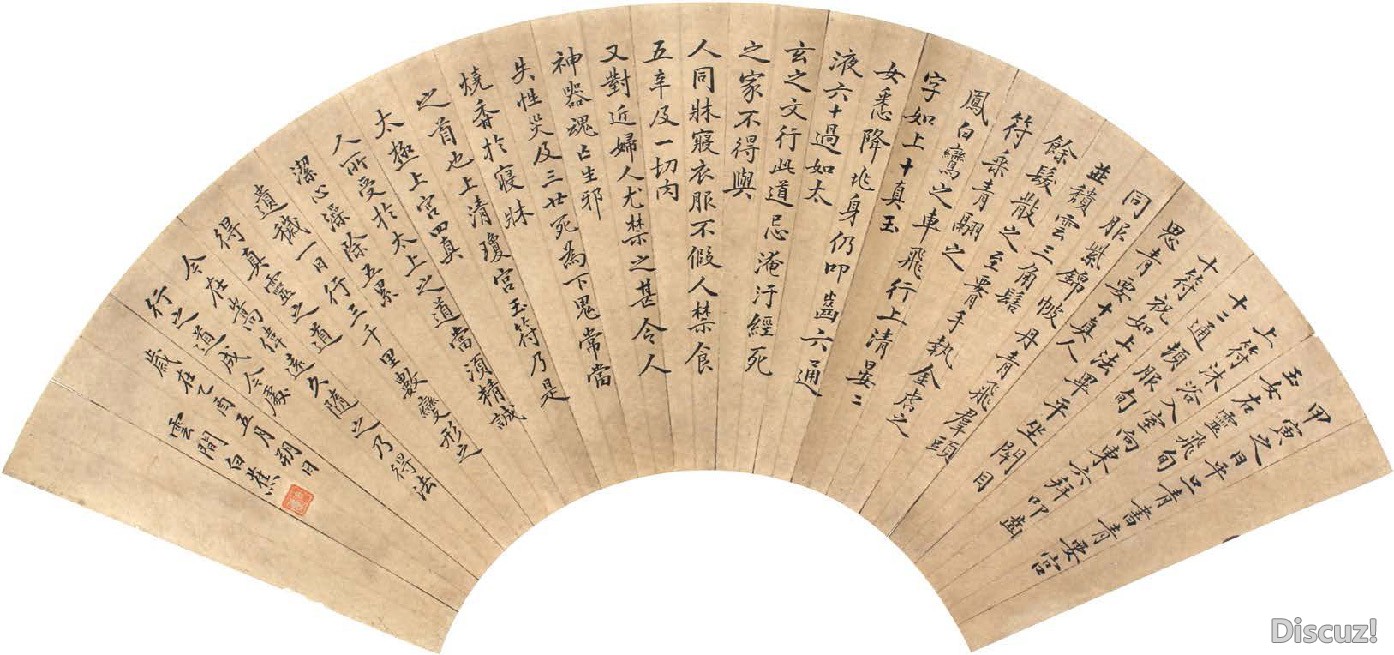 甲寅之日平旦青書青要宮
玉女右靈飛旬
上符沐浴入室向東六拜叩齒
十二通頓服旬
十符祝如上法畢平坐閉目
思青要十真人
同服紫錦帔丹青飛羣頭
並頹雲三角髻
餘髮散之至要手執金虎之
符乘青翮之
鳳白鸞之車飛行上清晏二
字如上十真玉
女悉降兆身仍叩齒六通
液六十過如太
玄之文行此道忌淹汙經死
之家不得與
人同牀寢衣服不假人禁食
五辛及一切肉
又對近婦人尤禁之甚令人
神器魂亡生邪
失性災及三世死為下鬼常當
燒香於寢牀
之首也上清瓊宮玉符乃是
太極上宮四真
人所受於太上之道當須精誠
潔心澡除五累
遺穢一日行三千里數變形之
得真靈之道
今在嵩偉遠久隨之乃得法
行之道成今處
歲在乙酉五月朔日
雲間白蕉
Discuz!